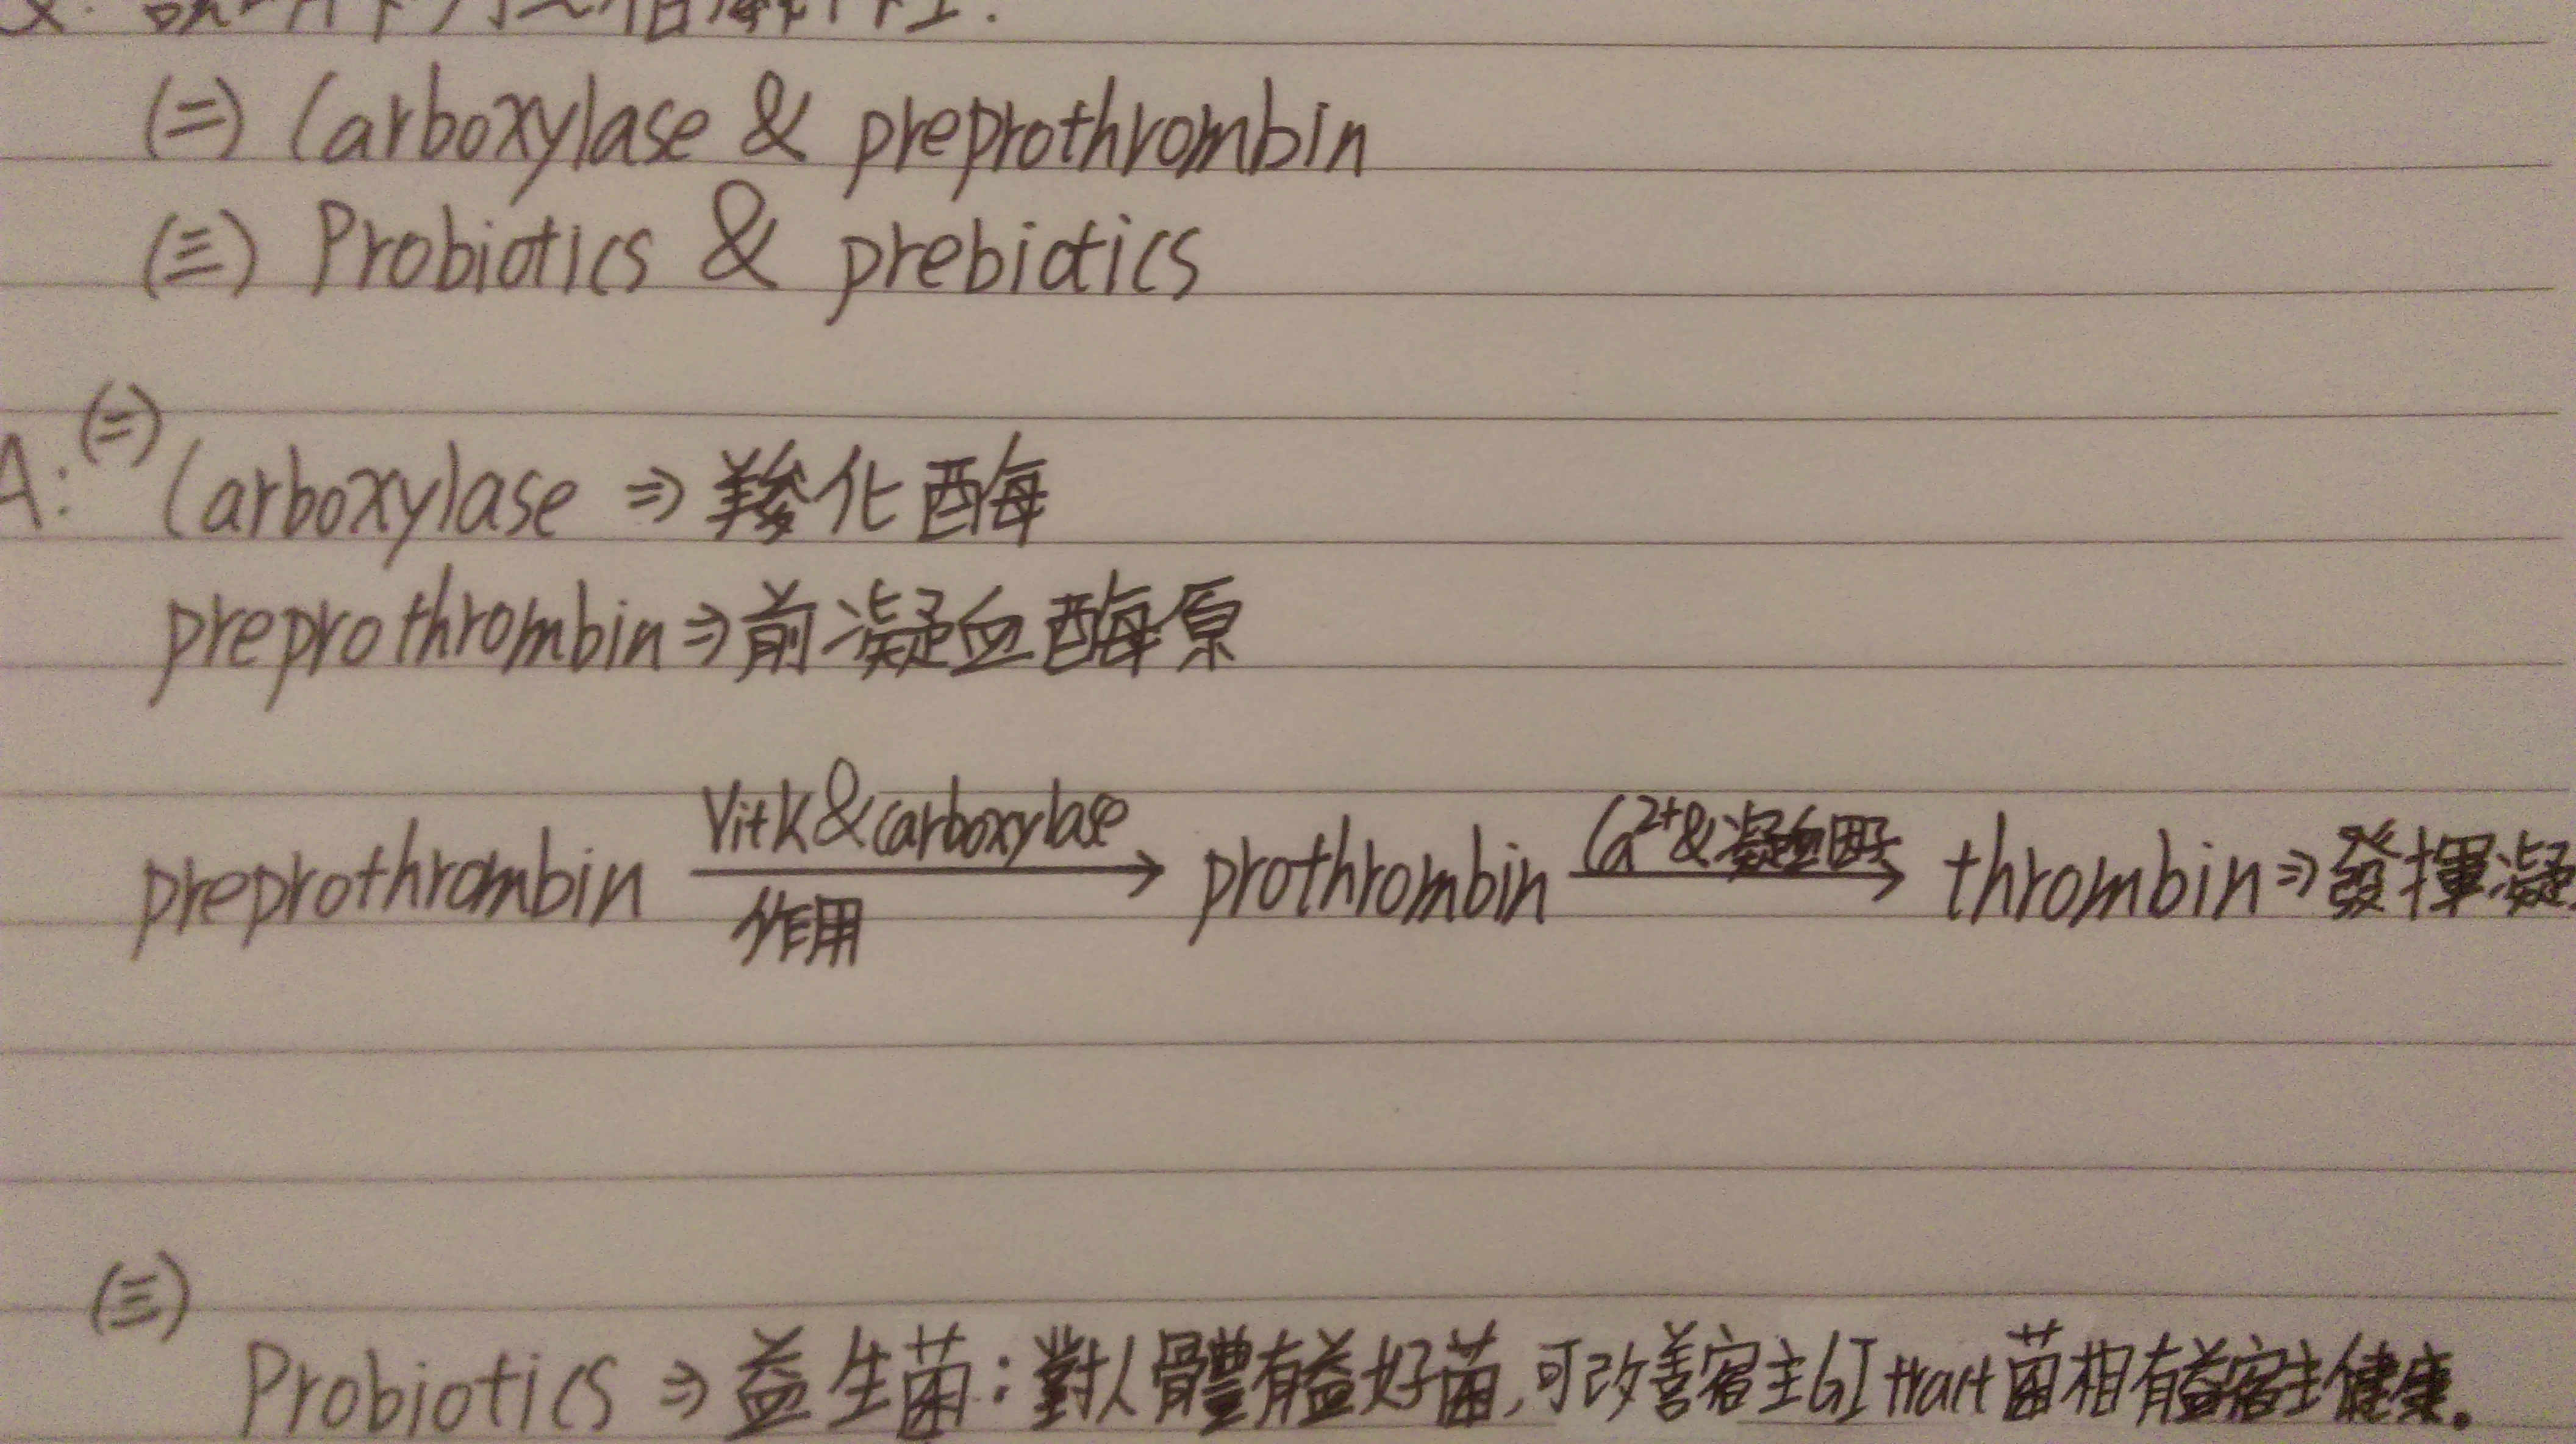 (二) Carboxylase & preprothrombin
(三) Probiotics & prebiotics
A: (二)
Carboxylase ⇒ 羧化酶
preprothrombin ⇒ 前凝血酶原
Vit K & carboxylase Ca²⁺ & 凝血因子
preprothrombin → prothrombin → thrombin ⇒ 發揮凝
作用
(三)
Probiotics ⇒ 益生菌:對人體有益好菌,可改善宿主GI tract菌相有益宿主健康。